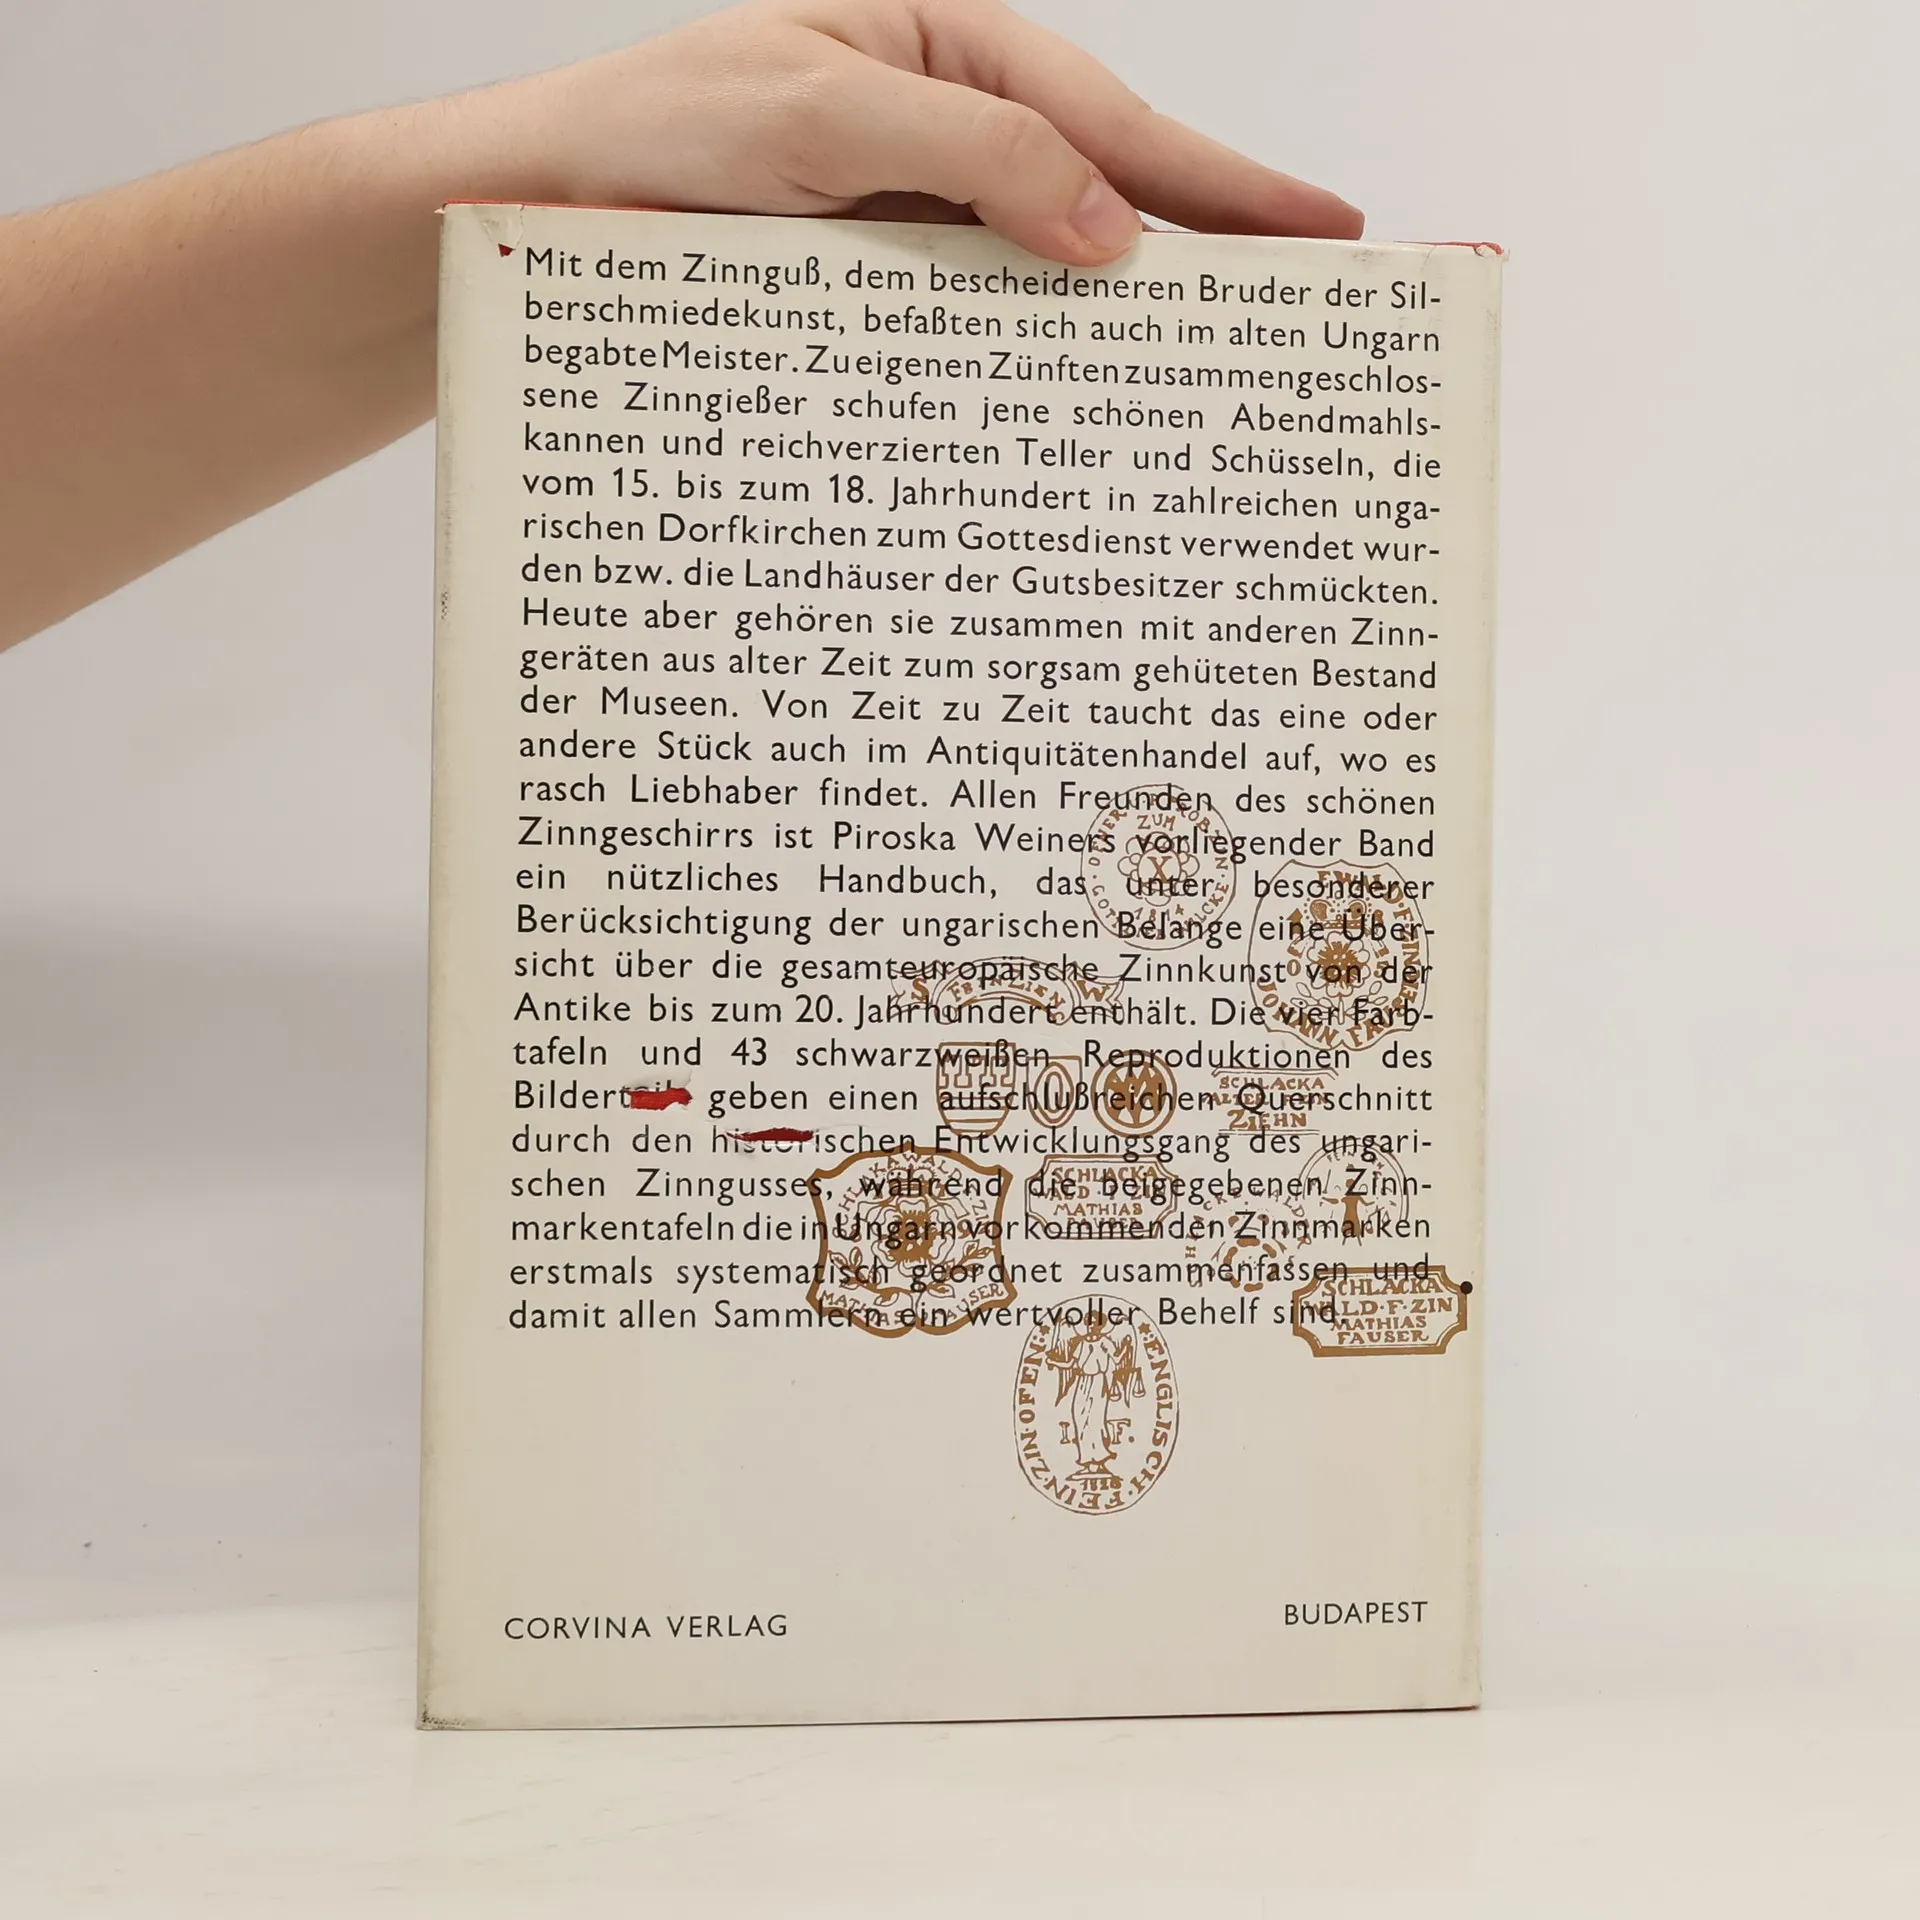 Mit dem Zinnguß, dem bescheideneren Bruder der Sil-
berschmiedekunst, befaßten sich auch im alten Ungarn
begabte Meister. Zu eigenen Zünften zusammengeschlos-
sene Zinngießer schufen jene schönen Abendmahls-
kannen und reichverzierten Teller und Schüsseln, die
vom 15. bis zum 18. Jahrhundert in zahlreichen unga-
rischen Dorfkirchen zum Gottesdienst verwendet wur-
den bzw. die Landhäuser der Gutsbesitzer schmückten.
Heute aber gehören sie zusammen mit anderen Zinn-
geräten aus alter Zeit zum sorgsam gehüteten Bestand
der Museen. Von Zeit zu Zeit taucht das eine oder
andere Stück auch im Antiquitätenhandel auf, wo es
rasch Liebhaber findet. Allen Freunden des schönen
Zinngeschirrs ist Piroska Weiners vorliegender Band
ein nützliches Handbuch, das unter besonderer
Berücksichtigung der ungarischen Belange eine Über-
sicht über die gesamteuropäische Zinnkunst von der
Antike bis zum 20. Jahrhundert enthält. Die vier Farb-
tafeln und 43 schwarzweißen Reproduktionen des
geben einen aufschlußreichen Querschnitt
durch den historischen Entwicklungsgang des ungari-
schen Zinngusses, während die beigegebenen Zinn-
markentafeln die in Ungarn vorkommenden Zinnmarken
erstmals systematisch geordnet zusammenfassen und
damit allen Sammlern ein wertvoller Behelf sind.
ZUM
X
S FEIN ZIEN W
SCHLACKA
ZIEHN
SCHLACKA
MATHIAS
SCHLACKA
WALD·F·ZIN
MATHIAS
FAUSER
FEIN·ZIN·OFEN ENGLISCH
I. F.
1828
CORVINA VERLAG
BUDAPEST